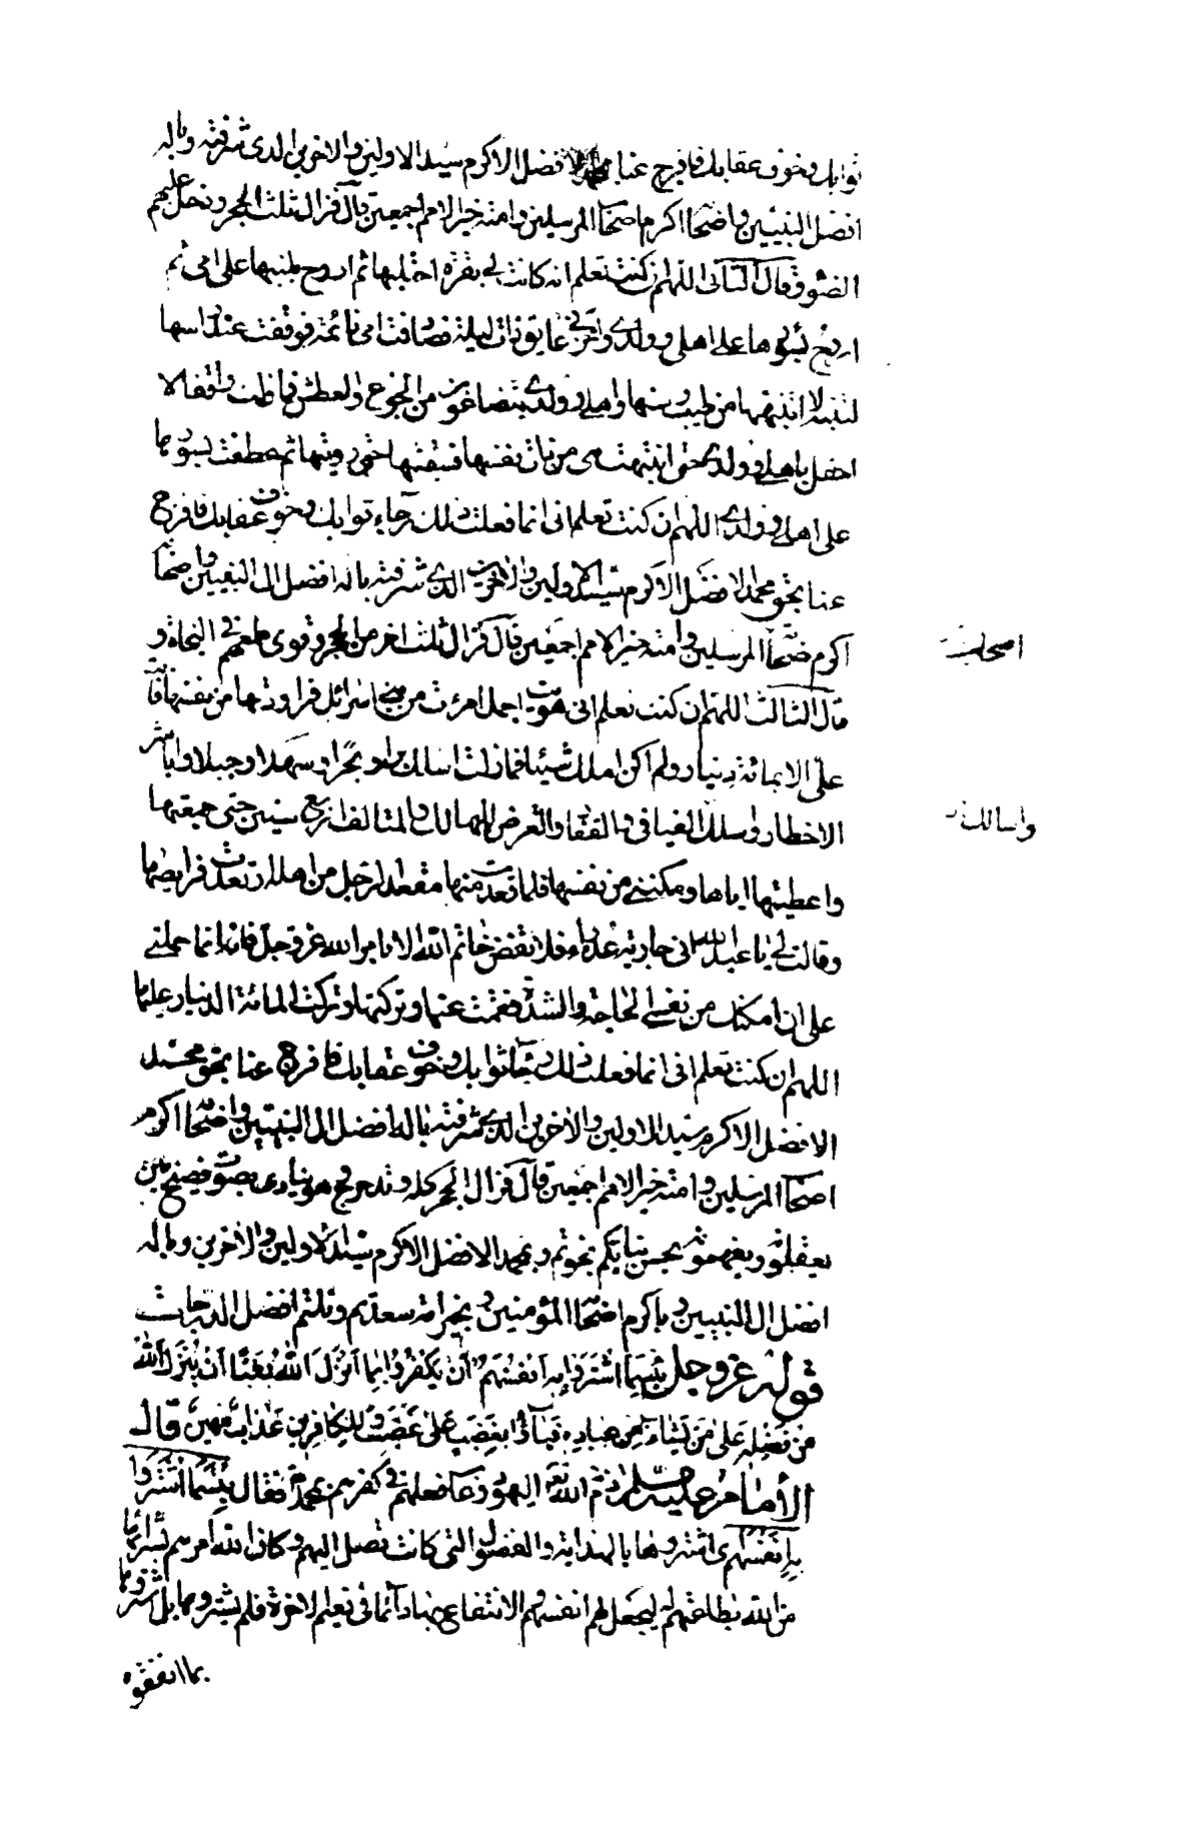 ثوابك وخوف عقابك فافرج عنا بمحمد الافضل الاكرم سيد الاولين والاخرين الذى شرفته وباله
افضل النبيين واصحابه اكرم اصحاب المرسلين وامته خير الامم اجمعين قال فزال ثلث الحجر ودخل عليهم
الضوء وقال الثانى اللهم ان كنت تعلم انه كانت لى بقرة احتلبها ثم اروح بلبنها على امى ثم
اروح بسؤرها على اهلى وولدى واخرنى عايق ذات ليلة فصادفت امى نائمة فوقفت عند راسها
لتنبه لا انبهها من طيب وسنها واهلى وولدى يتضاغون من الجوع والعطش فما زلت واقفا لا
احفل باهلى وولدى حتى انتبهت هى من ذات نفسها فسقيتها حتى رويتها ثم عطفت بسؤرها
على اهلى وولدى اللهم ان كنت تعلم انى انما فعلت ذلك رجاء ثوابك وخوف عقابك فافرج
عنا بحق محمد الافضل الاكرم سيد الاولين والاخرين الذى شرفته باله افضل ال النبيين واصحابه
اكرم صحابة المرسلين وامته خير الامم اجمعين قال فزال ثلث اخر من الحجر وقوى طمعهم فى النجاة و
قال الثالث اللهم ان كنت تعلم انى هويت اجمل امرءة من بنى اسرائل فراودتها من نفسها فابت
على الا بمائة دينار ولم اكن املك شيئا فما زلت اسالك برا وبحرا وسهلا وجبلا واباشر
الاخطار واسلك الفيافى والقفار والتعرض للمهالك والمتالف اربع سنين حتى جمعتها
واعطيتها اياها ومكنتنى من نفسها فلما قعدت منها مقعد الرجل من اهله ارتعدت فرايصها
وقالت لى يا عبد الله انى جارية عذراء فلا تفض خاتم الله الا بامر الله عز وجل فانه انما حملنى
على ان امكنك من نفسى الحاجة والشدة فقمت عنها وتركتها وتركت المائة الدينار عليها
اللهم ان كنت تعلم انى انما فعلت ذلك رجاء ثوابك وخوف عقابك فافرج عنا بحق محمد
الافضل الاكرم سيد الاولين والاخرين الذى شرفته باله افضل ال النبيين واصحابه اكرم
اصحاب المرسلين وامته خير الامم اجمعين قال فزال الحجر كله وتدحرج وهو ينادى بصوت فصيح بين
يعقلونه ويفهمونه بحسن نياتكم نجوتم وبمحمد الافضل الاكرم سيد الاولين والاخرين وباله
افضل ال النبيين وباكرم اصحاب المؤمنين وبخير امة سعدتم ونلتم افضل الدرجات
قوله عز وجل بِئْسَمَا اشْتَرَوْا بِهِ اَنْفُسَهُمْ اَنْ يَكْفُرُوا بِمَا اَنْزَلَ اللهُ بَغْيًا اَنْ يُنَزِّلَ اللهُ
مِنْ فَضْلِهِ عَلى مَنْ يَشاءُ مِنْ عِبادِه فَبَآؤُا بِغَضَبٍ عَلى غَضَبٍ وَلِلْكافِرينَ عَذابٌ مُهينٌ قال
الامام عليه السلم ذم الله اليهود وعاب فعلهم فى كفرهم بمحمد فقال بِئْسَمَا اشْتَرَوْا
بِه اَنْفُسَهُمْ اى اشتروها بالهدايا والفضول التى كانت تصل اليهم وكان الله امرهم بشرائها
من الله بطاعتهم له ليجعل لهم انفسهم والانتفاع بها دائما فى نعيم الاخرة فلم يشتروها بل اشتروها
بما انفقوه
اصحابه
واسالك